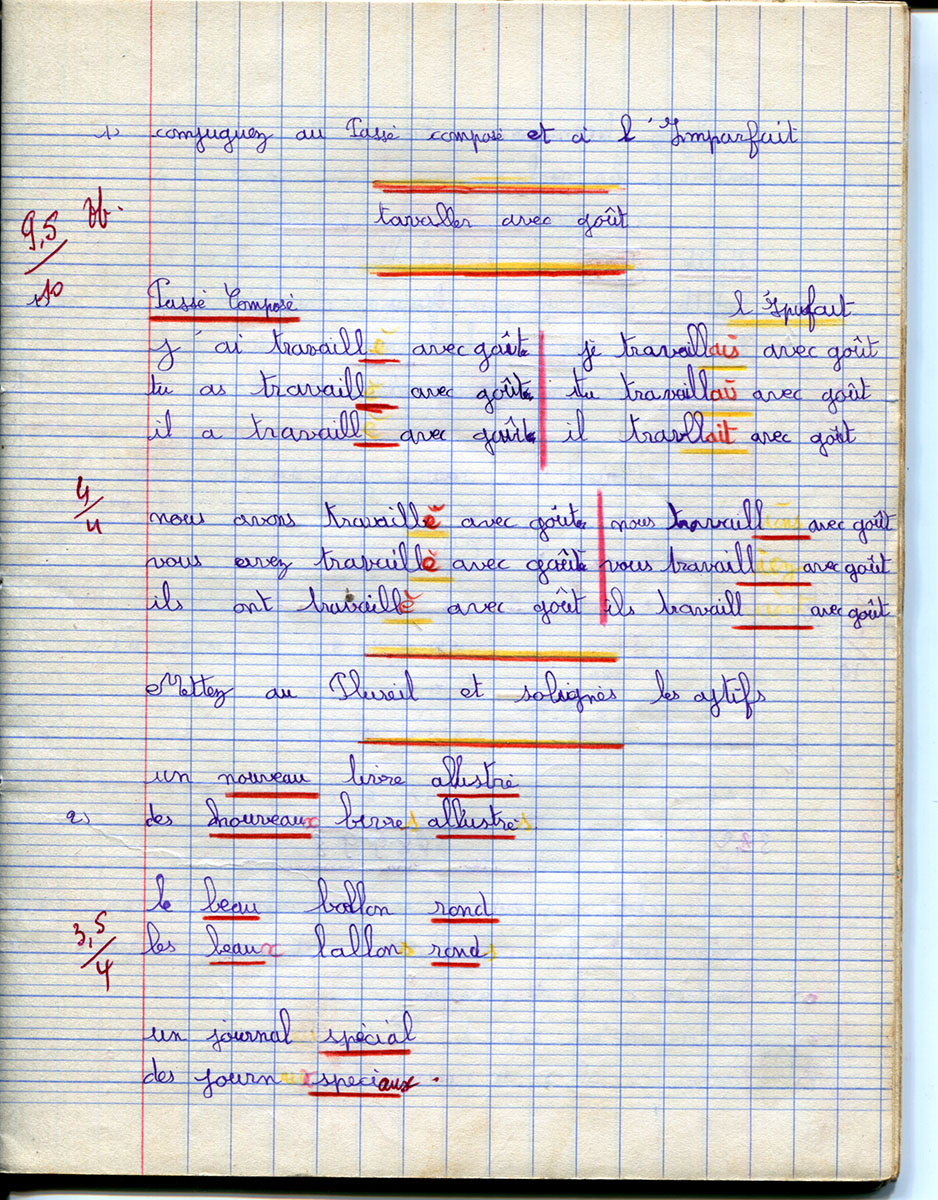 1) conjuguez au Passé composé et à l'Imparfait
tavaller avec goût
9,5 Tb.
10
Passé Composé l'Ipufait
j'ai travaillé avec goût je travaillais avec goût
tu as travaillé avec goût tu travaillais avec goût
il a travaillé avec goût il travllait avec goût
4/4
nous avons travaillé avec goût nous travaillions avec goût
vous avez travaillé avec goût vous travailliez avec goût
ils ont travaillé avec goût ils travaill avec goût
Mettez au Plureil et solignés les ajtifs
un nouveau livre allustré
2) des nouveaux livres allustrés
le beau ballon rond
3,5/4
les beaux ballons ronds
un journal spécial
des journaux speciaux.